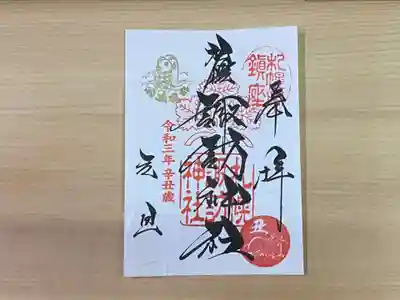 奉拝
札幌
鎮座
諏訪神社
札幌
諏訪
神社
令和三年 辛丑歳
元旦
丑